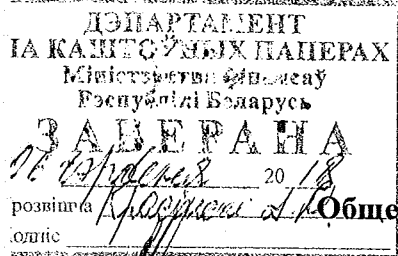 ДЭПАРТАМЕНТ
ПА КАШТОЎНЫХ ПАПЕРАХ
Міністэрства фінансаў
Рэспублікі Беларусь
ЗАВЕРАНА
20 18
розвішча Обще
одпіс